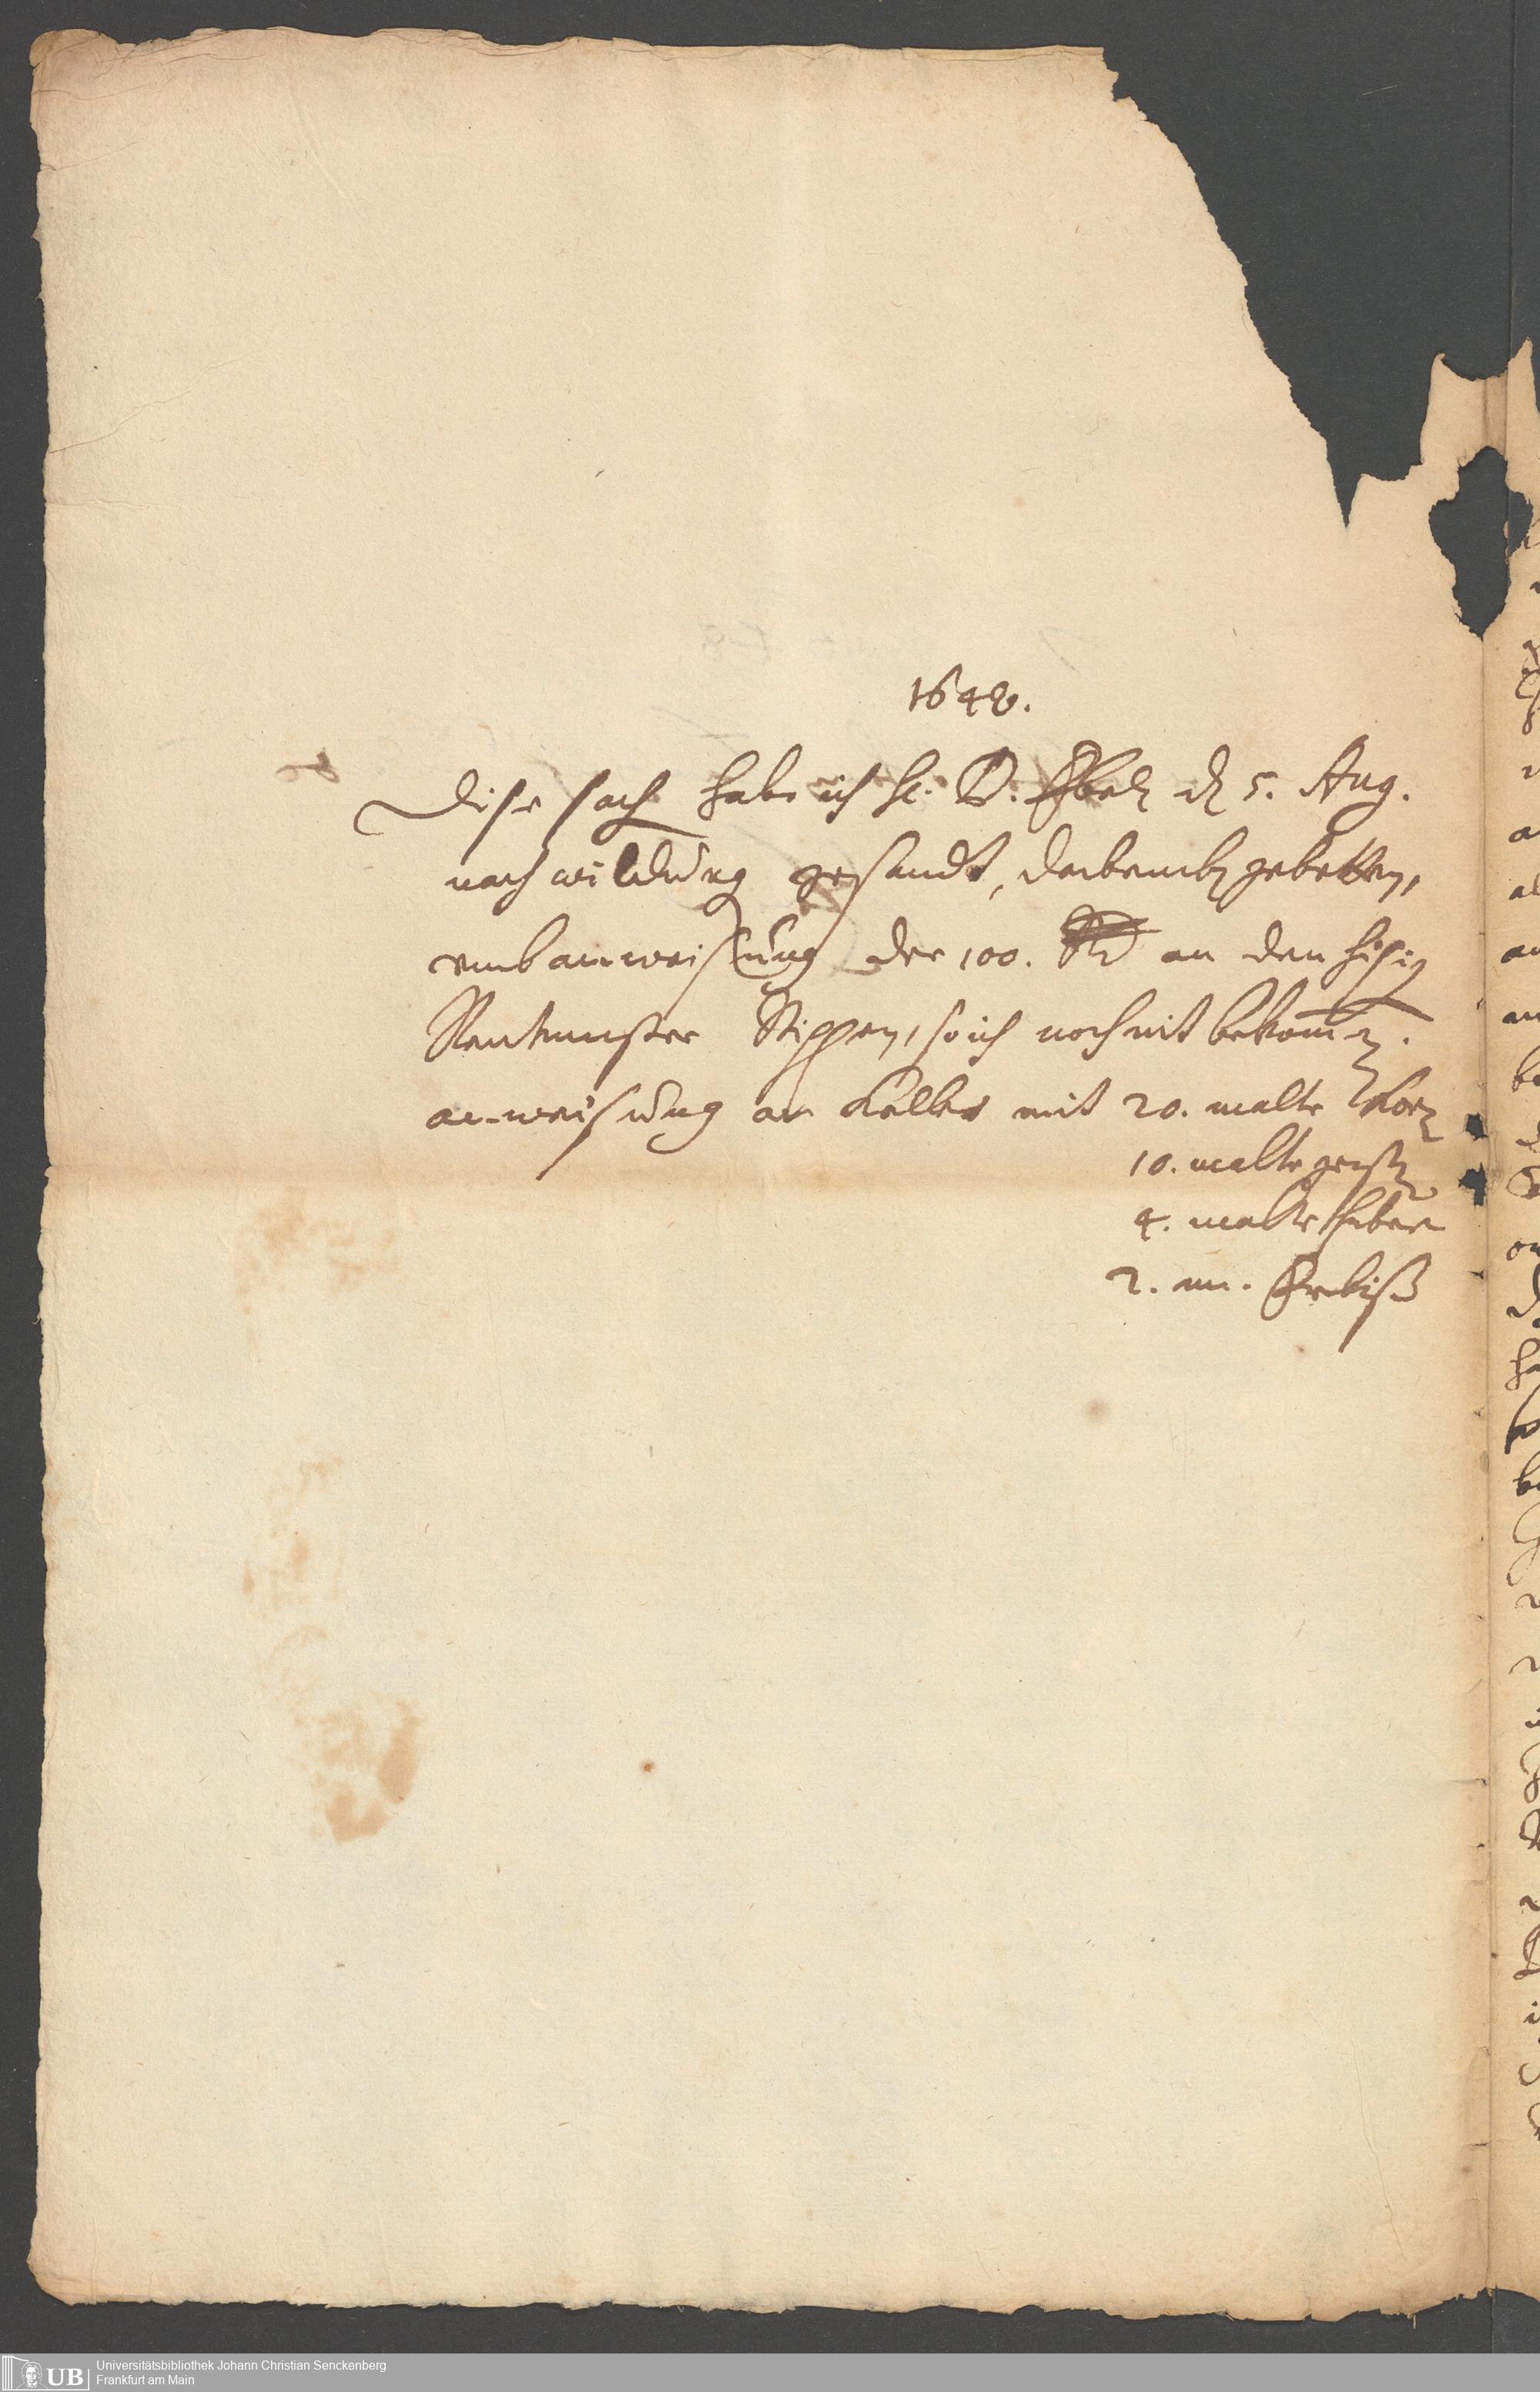 1648.
Dise sach habe ich H. D. Ebeln d 5. Aug.
nach wildung gesandt, darbeneben gebetten,
umb anweisung der 100. an den hisigen
Rentmeister so ich noch nit bekommen.
anweisung an Keller mit 20. malter Korn
10. malter gersten
4. malter habern
2. m. Erbiß
Universitätsbibliothek Johann Christian Senckenberg
Frankfurt am Main
UB